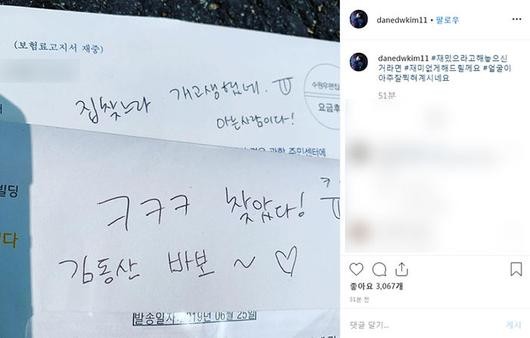 (보험료고지서 재중)
집찾느라 개고생했네. ㅠ
아는사람이다!
요금후
주민센터에
빌딩
ㅋㅋㅋ 찾았다! ㅠ
김동산 바보 ~ ♡
발송일자 : 2019년 06월 25일
danedwkim11 • 팔로우
danedwkim11 #재밌으라고해놓으신
거라면 #재미없게해드릴께요 #얼굴이
아주잘찍혀계시네요
51분
좋아요 3,067개
51분 전
댓글 달기...
게시